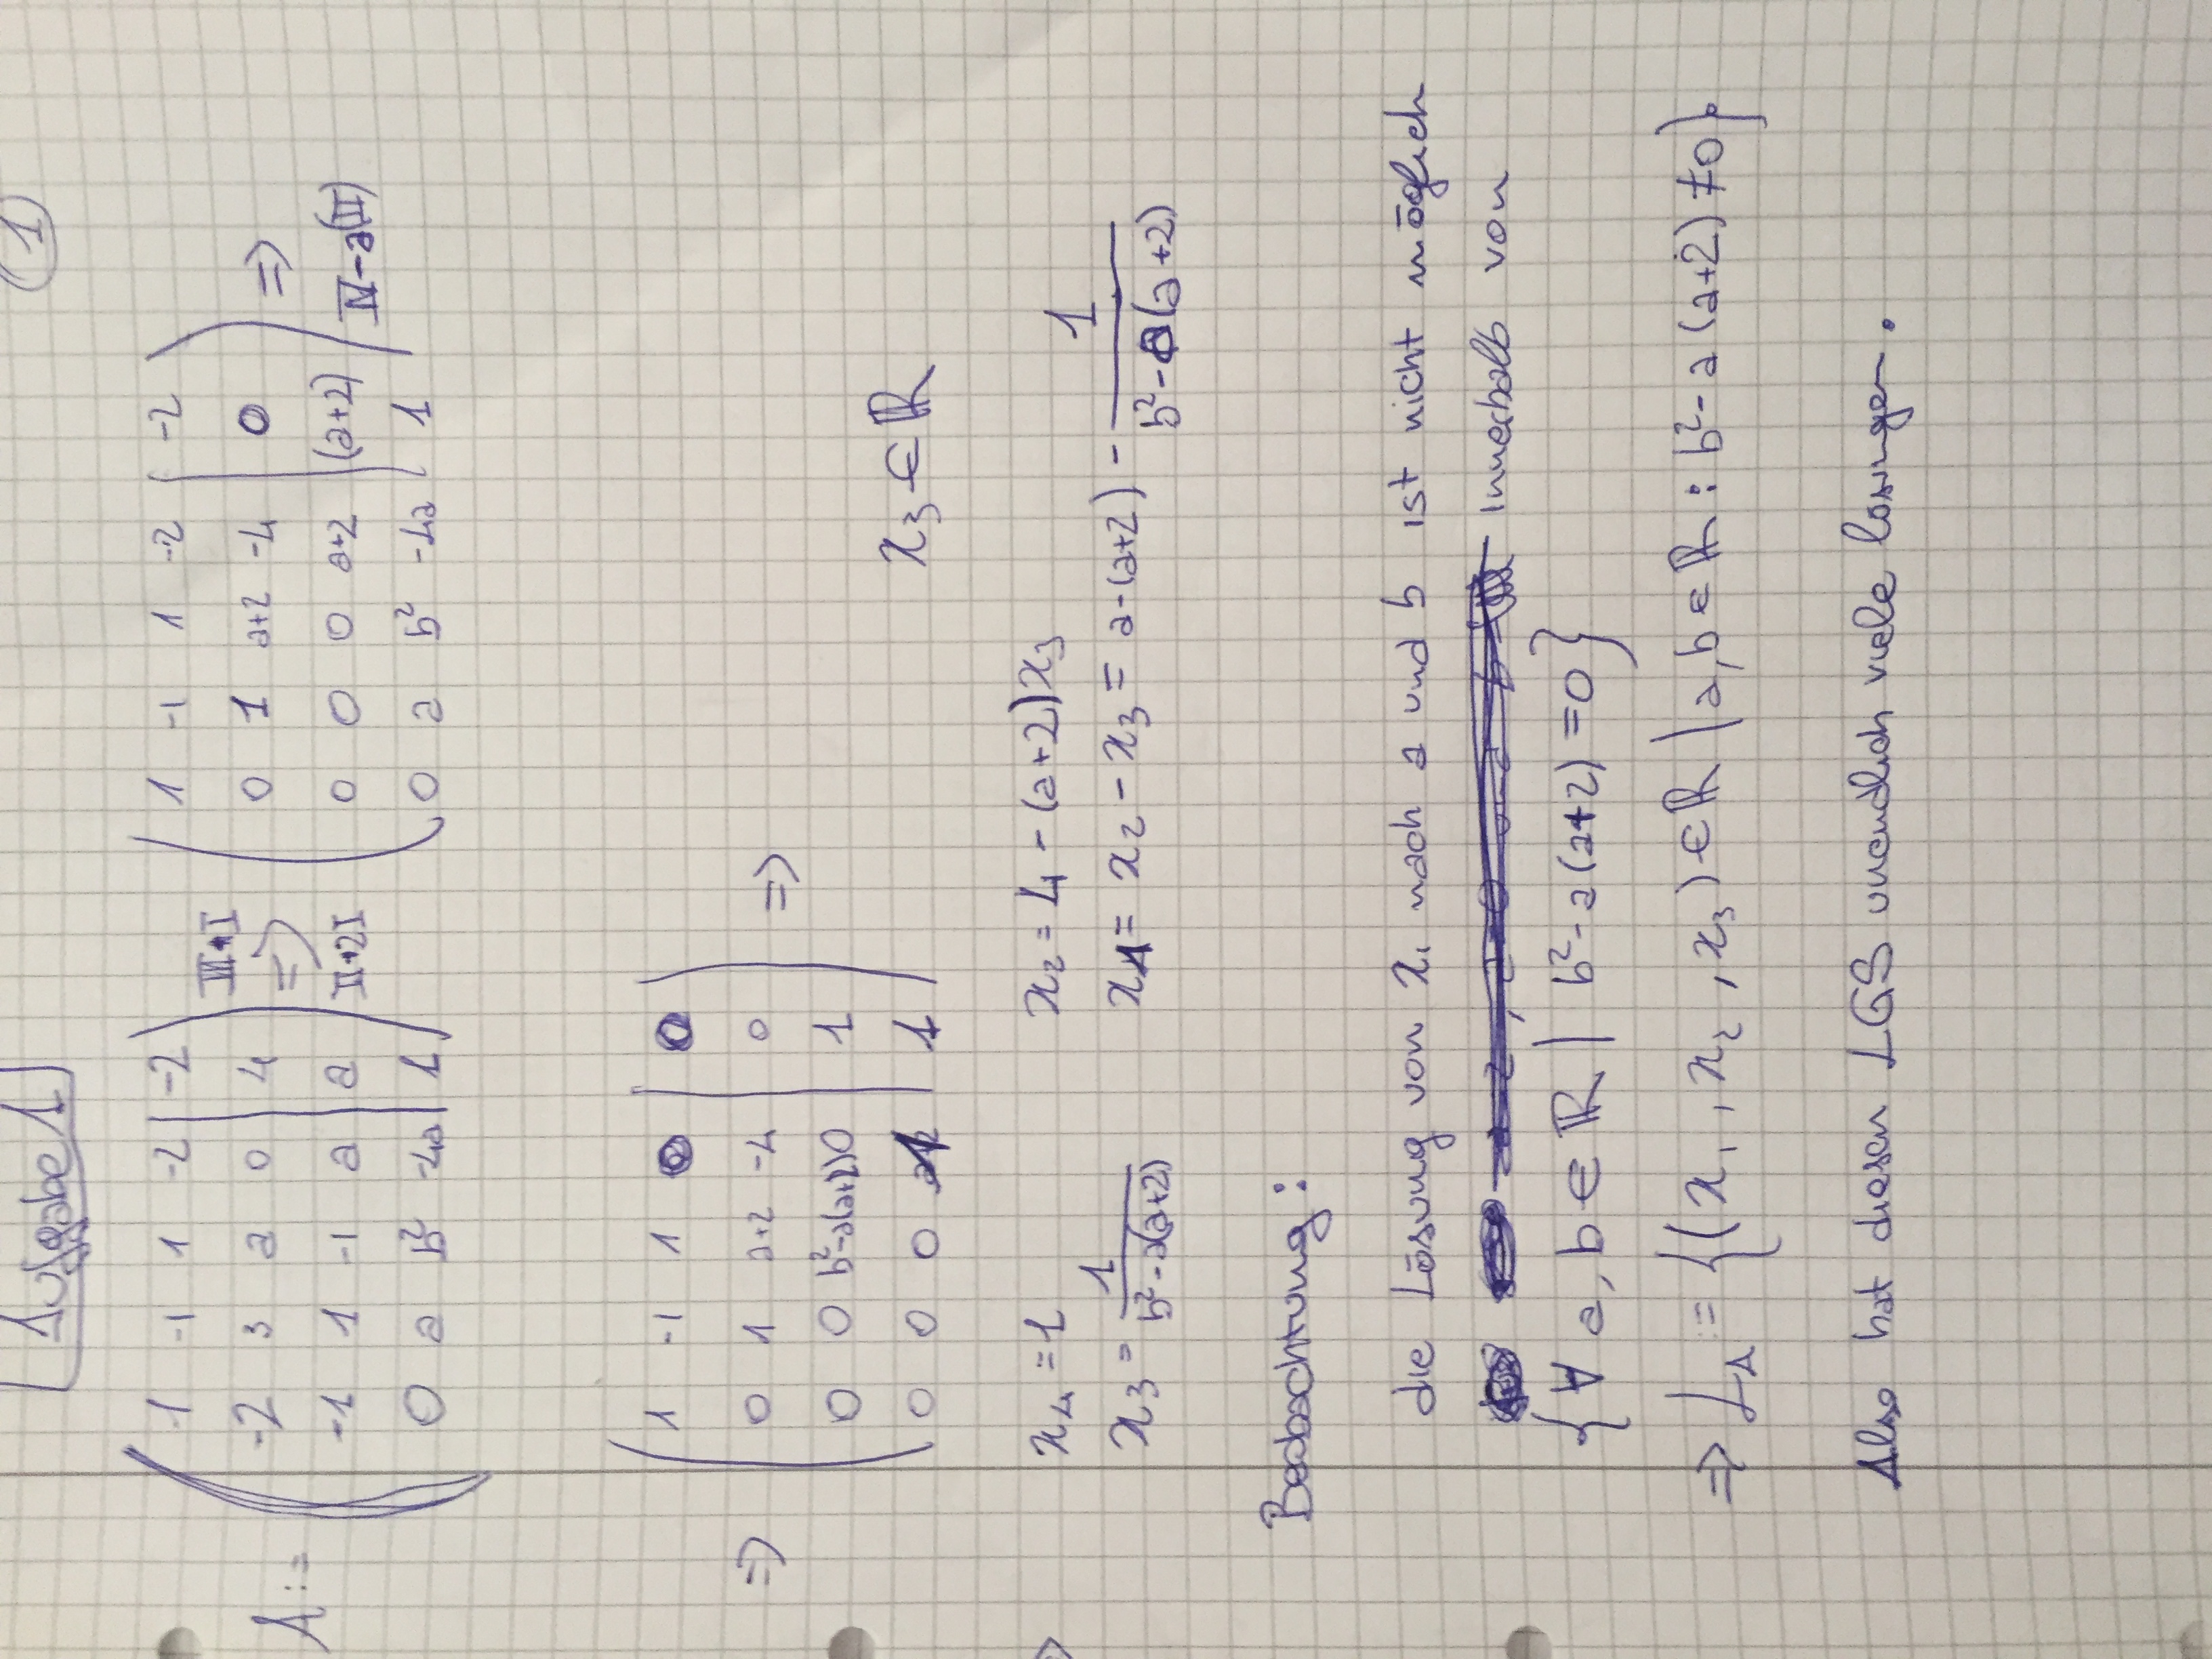 Aufgabe 1
1
A := ( 1 -1 1 -2 | -2 ) III+I ( 1 -1 1 -2 | -2 )
-2 3 a 0 | 4 ⇒ 0 1 a+2 -4 | 0 ⇒
-1 1 -1 a | a II+2I 0 0 0 a+2 | (a+2) IV-a(II)
0 a b² -4a | 1 0 a b² -4a | 1
1 -1 1 0 | 0
⇒ 0 1 a+2 -4 | 0 ⇒
0 0 b²-a(a+2) 0 | 1
0 0 0 1 | 1
x₃ ∈ ℝ
⇒ x₄ = 1 x₂ = 4 - (a+2)x₃
x₃ = 1/(b²-a(a+2)) x₁ = x₂ - x₃ = a-(a+2) - 1/(b²-a(a+2))
Beobachtung:
die Lösung von x₁ nach a und b ist nicht möglich
innerhalb von
{∀ a, b ∈ ℝ | b²-a(a+2) = 0}
⇒ L_A := {(x₁, x₂, x₃) ∈ ℝ | a,b ∈ ℝ : b²-a(a+2) ≠ 0}
Also hat diesen LGS unendlich viele lösungen.